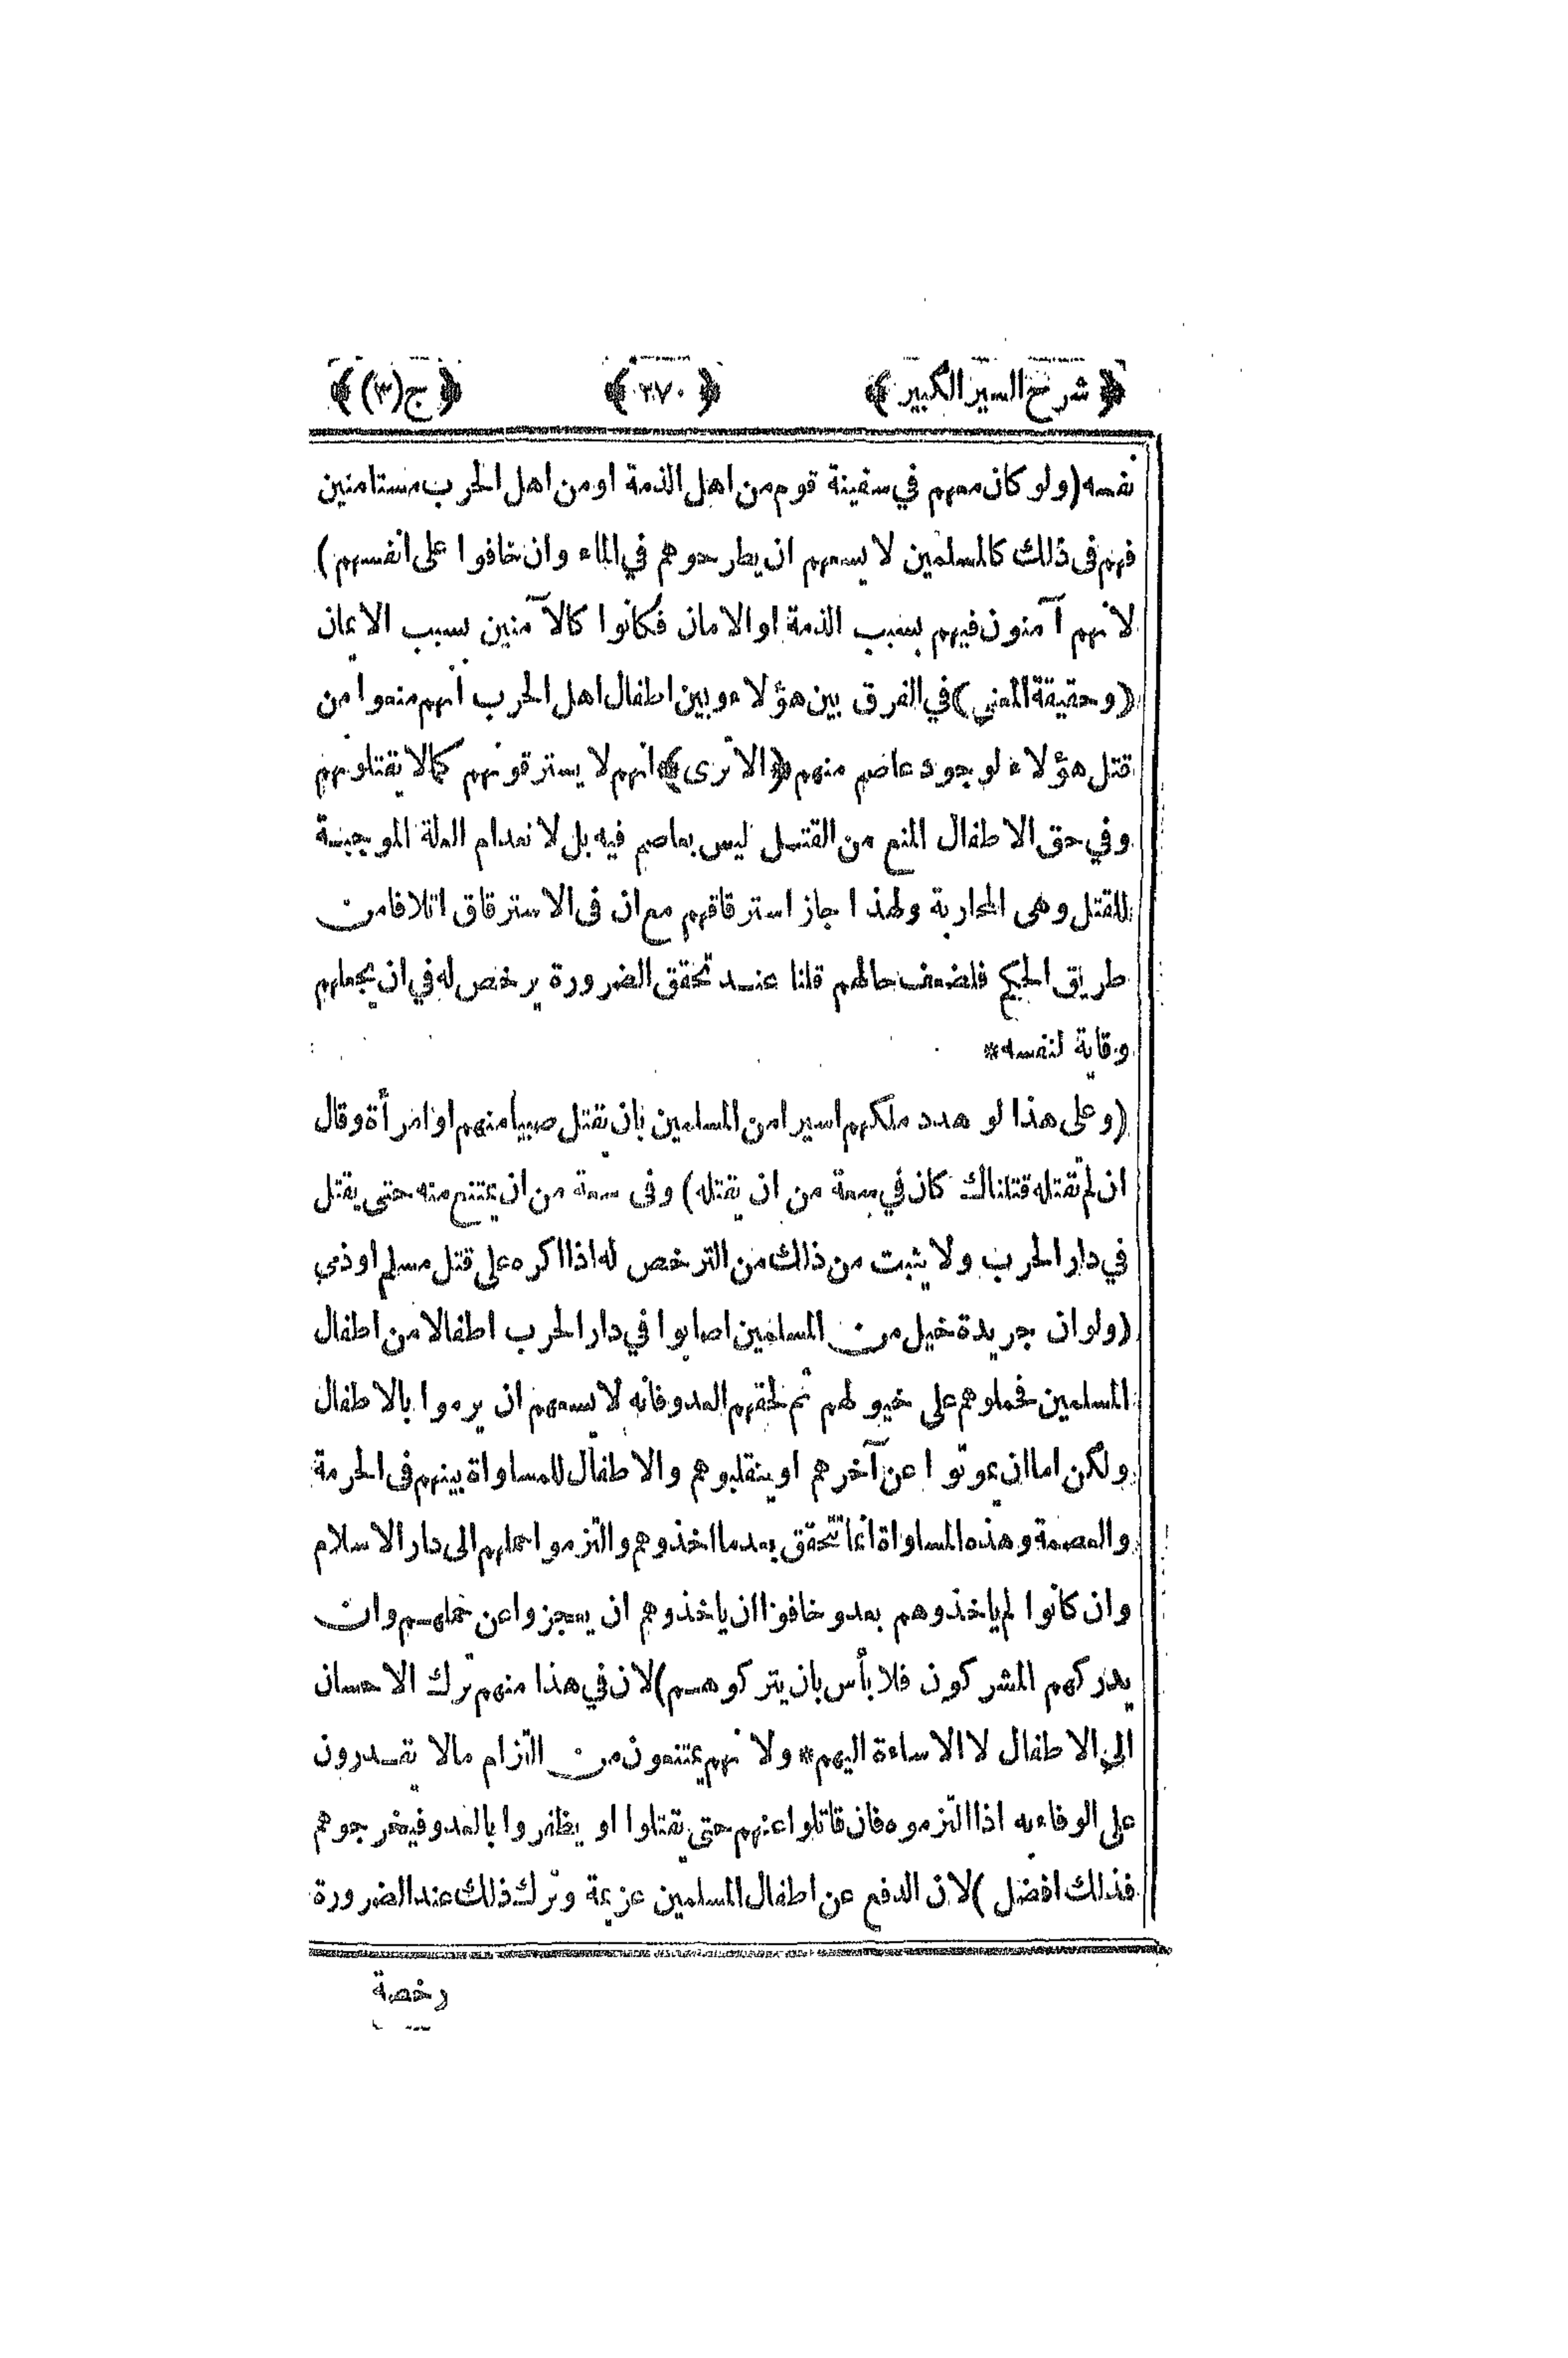 ﴿شرح السير الكبير﴾ ﴿٢٧٠﴾ ﴿ج(٣)﴾
نفسه (ولو كان معهم في سفينة قوم من اهل الذمة او من اهل الحرب مستامنين
فهم فى ذلك كالمسلمين لا يسعهم ان يطرحوهم في الماء وان خافوا على انفسهم)
لانهم آمنون فيهم بسبب الذمة او الامان فكانوا كالآمنين بسبب الايمان
(وحقيقة المعنى) في الفرق بين هؤلاء وبين اطفال اهل الحرب انهم منعوا من
قتل هؤلاء لوجود عاصم منهم ﴿الا ترى﴾ انهم لا يسترقونهم كما لا يقتلونهم
وفي حق الاطفال المنع من القتل ليس بعاصم فيه بل لانعدام العلة الموجبة
للقتل وهى المحاربة ولهذا جاز استرقاقهم مع ان فى الاسترقاق اتلافا من
طريق الحكم فلضعف حالهم قلنا عند تحقق الضرورة يرخص له في ان يجعلهم
وقاية لنفسه*
(وعلى هذا لو هدد ملكهم اسيرا من المسلمين بان يقتل صبيا منهم او امرأة وقال
ان لم تقتله قتلناك كان في سعة من ان يقتله) وفى سعة من ان يمتنع منه حتى يقتل
في دار الحرب ولا يثبت من ذلك من الترخص له اذا اكره على قتل مسلم او ذمي
(ولو ان جريدة خيل من المسلمين اصابوا في دار الحرب اطفالا من اطفال
المسلمين فحملوهم على خيولهم ثم لحقهم العدو فانه لا يسعهم ان يرموا بالاطفال
ولكن اما ان يموتوا عن آخرهم او ينقلبوهم والاطفال للمساواة بينهم فى الحرمة
والعصمة وهذه المساواة انما تتحقق بعد ما اخذوهم والتزموا حملهم الى دار الاسلام
وان كانوا لم ياخذوهم بعد وخافوا ان ياخذوهم ان يعجزوا عن حملهم وان
يدركهم المشركون فلا بأس بان يتركوهم) لان في هذا منهم ترك الاحسان
الى الاطفال لا الاساءة اليهم* ولانهم يمتنعون من التزام مالا يقدرون
على الوفاء به اذا التزموه فان قاتلوا عنهم حتى يقتلوا او يظفروا بالعدو فيخرجوهم
فذلك افضل) لان الدفع عن اطفال المسلمين عزيمة وترك ذلك عند الضرورة
رخصة